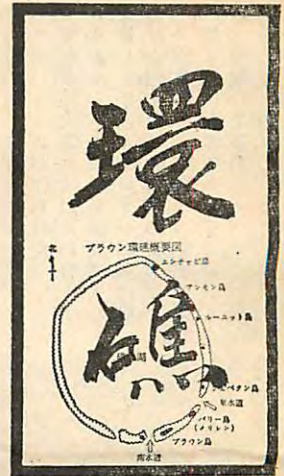 環礁
北
ブラウン環礁概要図
エンチャビ島
アンモン島
ルーニット島
東水道
パリー島
(メリレン)
ブラウン島
南水道